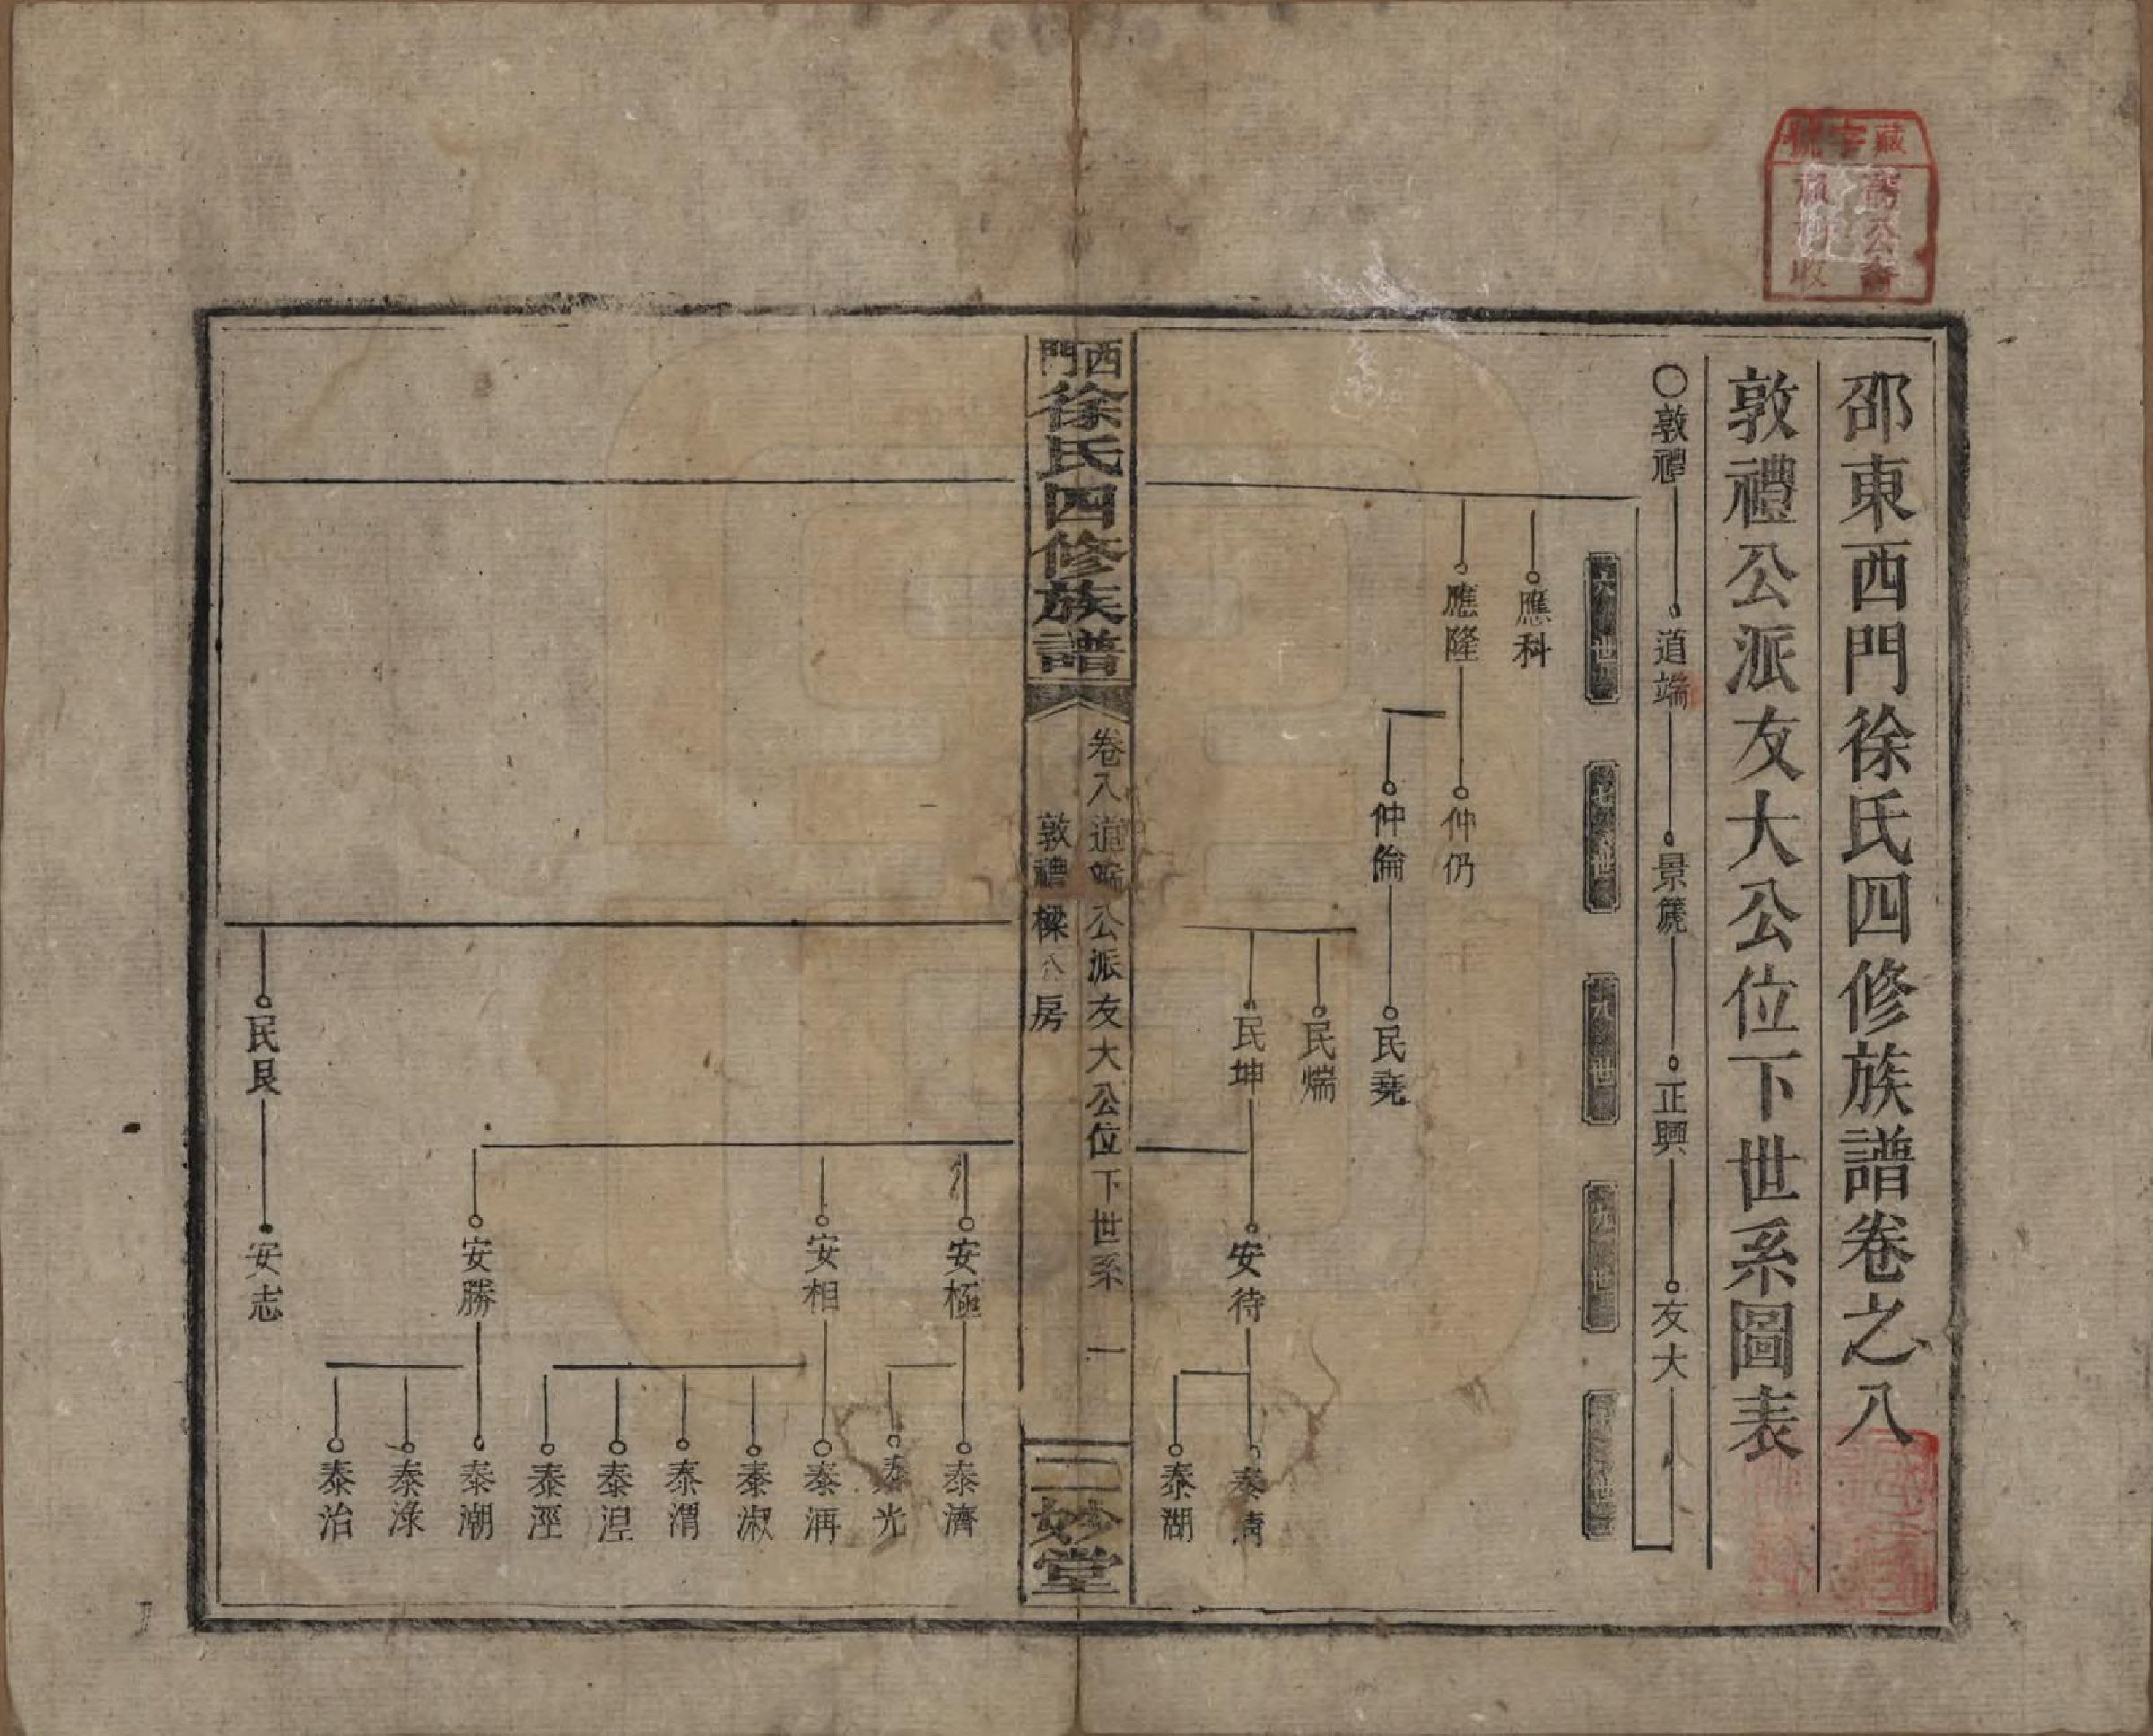 邵東西門徐氏四修族譜卷之八
敦禮公派友大公位下世系圖表
○敦禮
道端
景篪
正興
友大
應科
應隆
仲仍
仲倫
民堯
民煓
民坤
安待
泰清
泰湖
西門徐氏四修族譜
卷八 道端公派友大公位下世系 一
敦禮 樑公房
二妙堂
安極
泰濟
泰光
安相
泰洅
泰淑
泰渭
泰涅
泰涇
安勝
泰潮
泰淥
泰治
民艮
安志